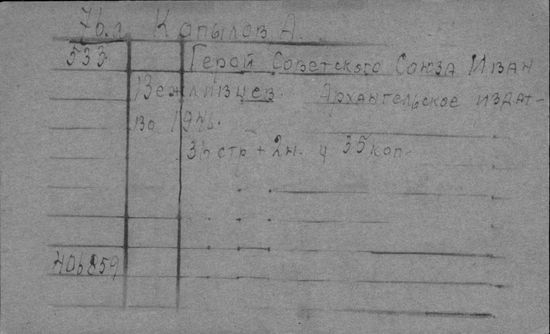 7б.л Копылов А.
533 Герой Советского Союза Иван
Вежливцев. Архангельское издат-
во 194.
34 стр + 2н. ц 35 коп.
406859